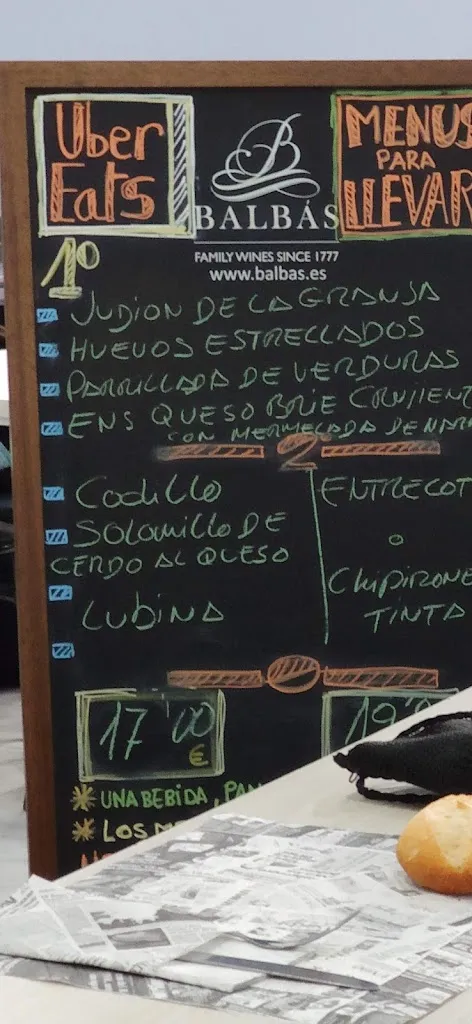 Uber
Eats
B
BALBÁS
FAMILY WINES SINCE 1777
www.balbas.es
MENUS
PARA
LLEVAR
1º
JUDION DE LA GRANJA
HUEVOS ESTRELLADOS
PARRILLADA DE VERDURAS
ENS QUESO BRIE CRUJIENT
CON MERMELADA DE NARA
2
Codillo
SOLOMILLO DE
CERDO AL QUESO
LUBINA
ENTRECOT
o
CHIPIRONE
TINTA
17'00
€
19'
UNA BEBIDA, PAN
LOS